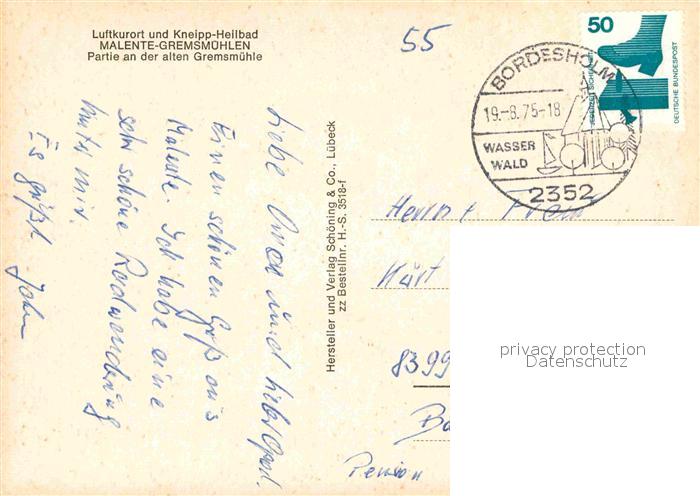 Luftkurort und Kneipp-Heilbad
MALENTE-GREMSMÜHLEN
Partie an der alten Gremsmühle
55
50
DEUTSCHE BUNDESPOST
JEDERZEIT SICHERHEIT
BORDESHOLM
19.-8.75-18
WASSER
WALD
2352
Liebe Omi und lieber Opa!
Einen schönen Gruß aus
Malente. Ich habe eine
sehr schöne Radwanderung
hinter mir.
Es grüßt
John
Hersteller und Verlag Schöning & Co., Lübeck
zz Bestellnr. H.-S. 3518-f
Herrn + Frau
Kurt
8399
Ba
Pension
privacy protection
Datenschutz